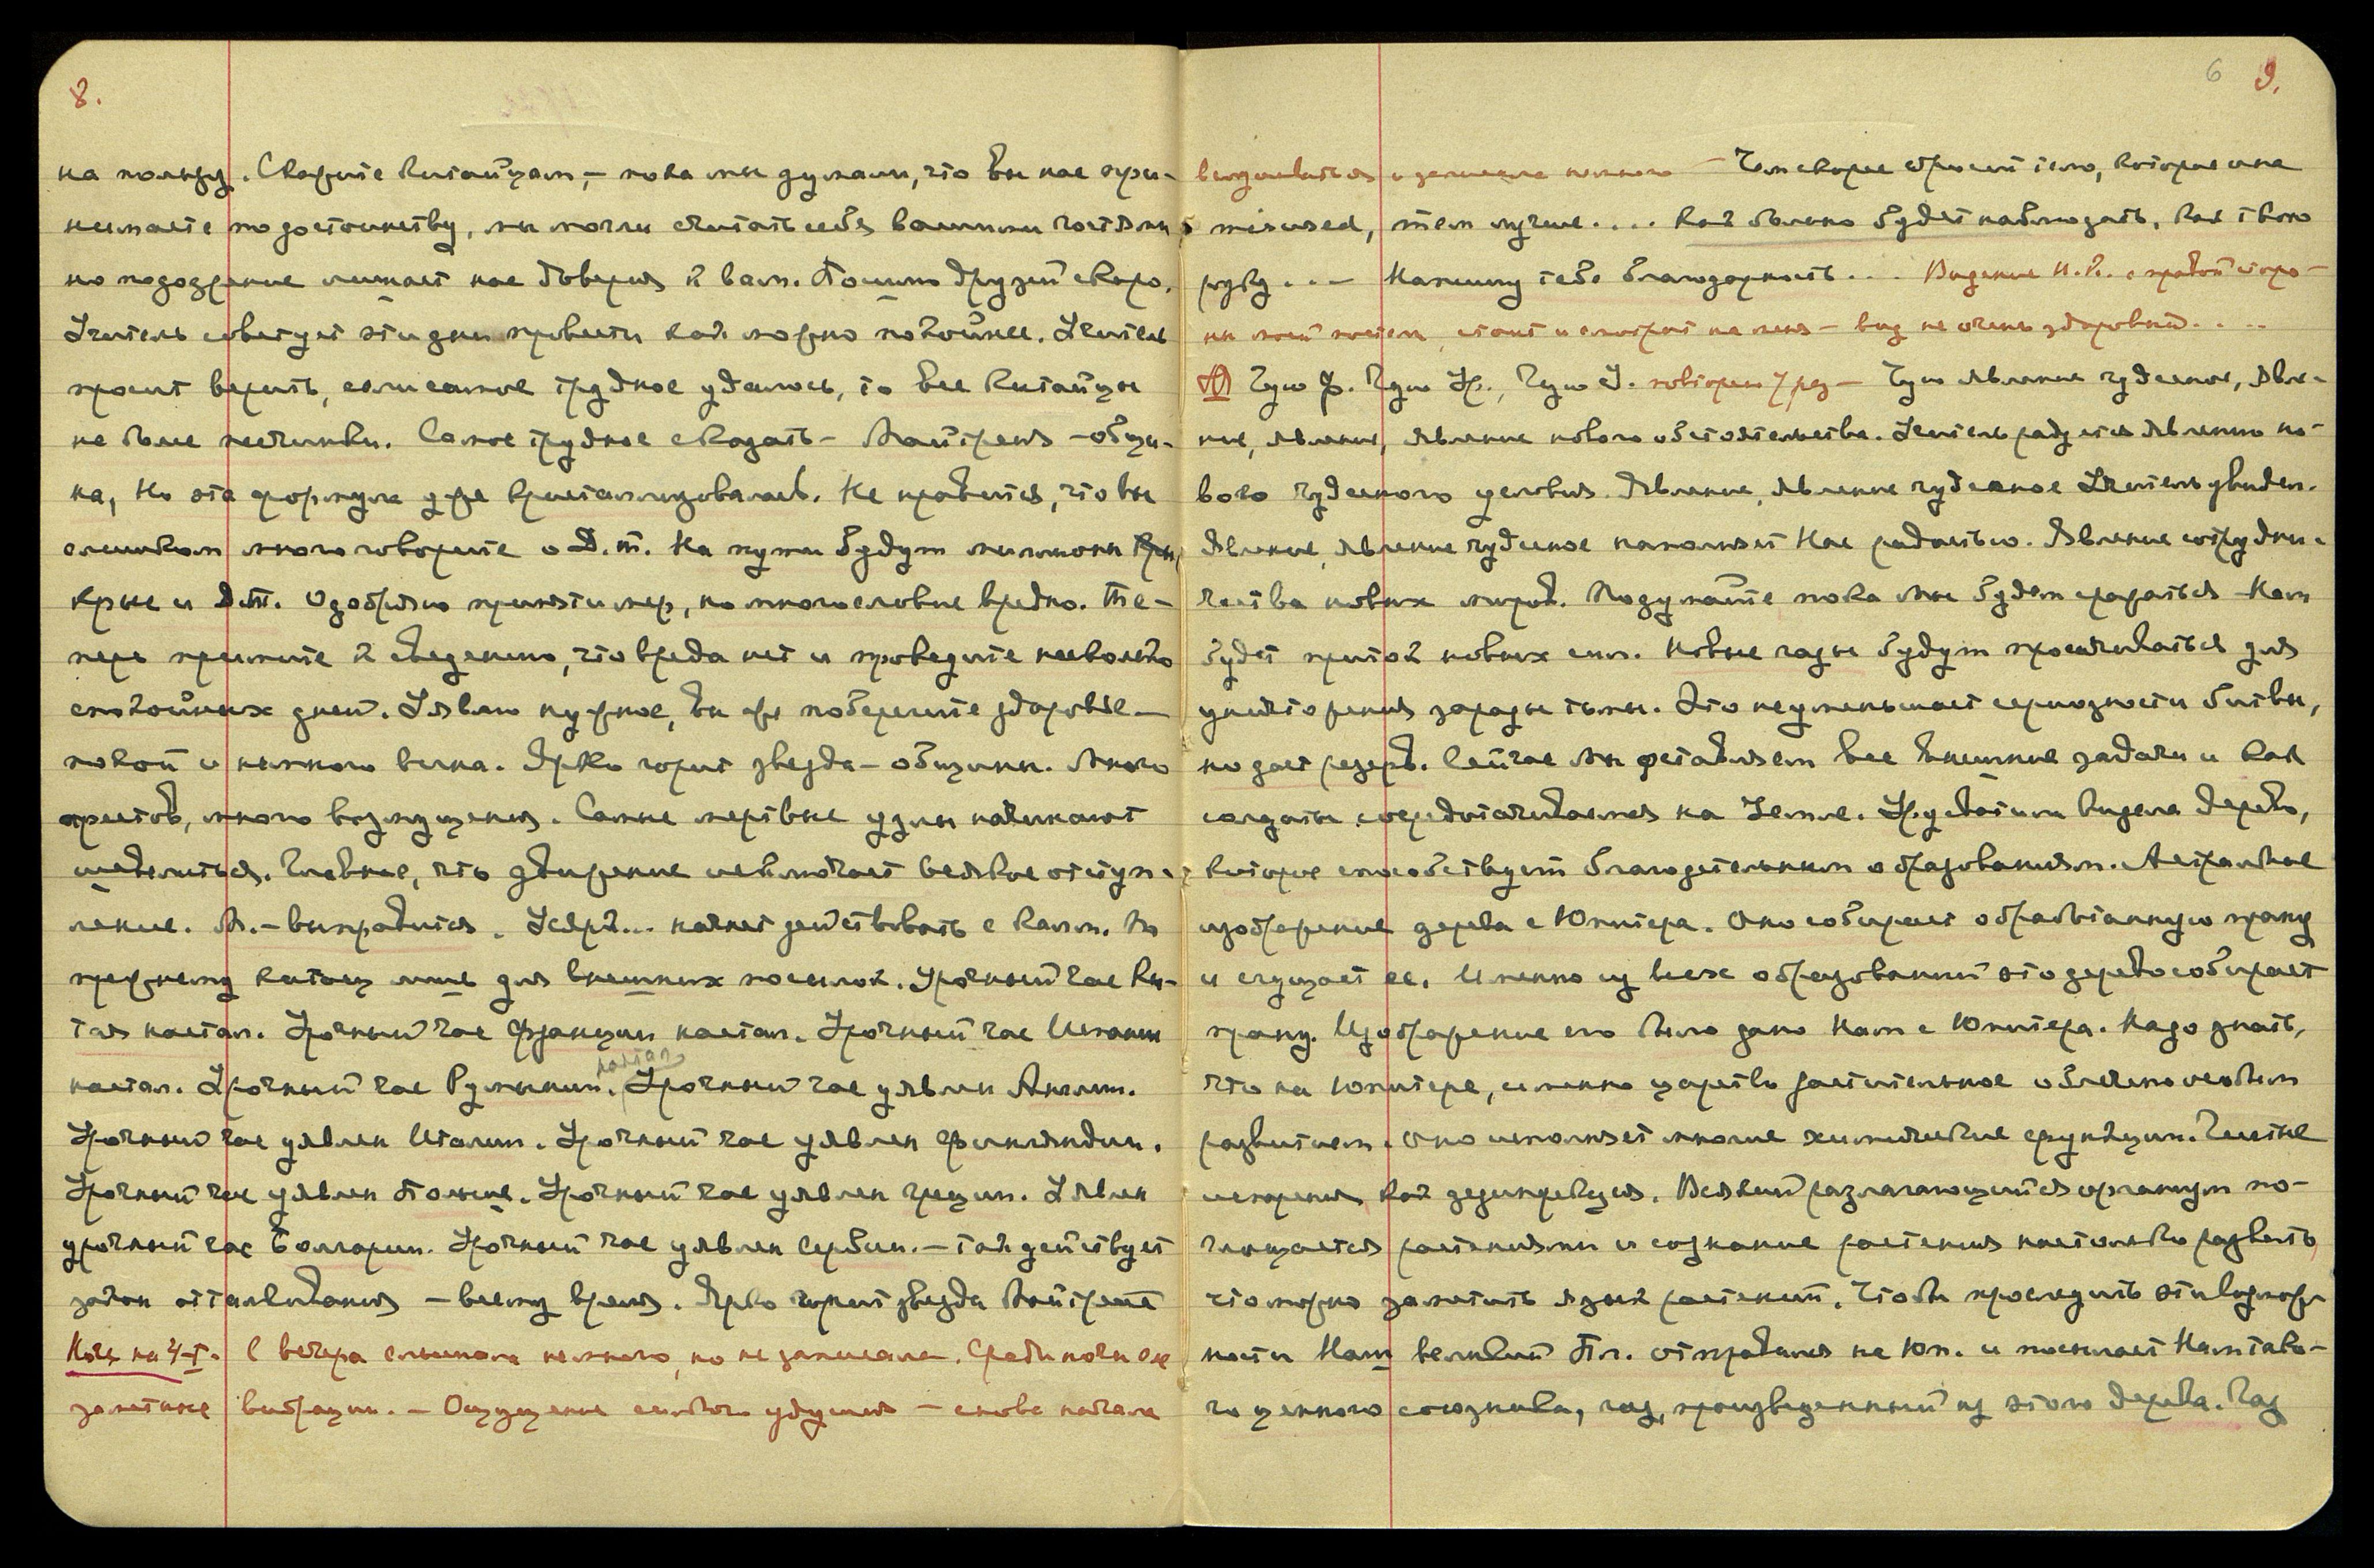 8.
на пользу. Скажите китайцам, – пока мы думали, что вы нас при-
нимаете по достоинству, мы могли считать себя вашими гостями,
но подозрение лишает нас доверия к вам. Пошлю друзей скоро.
Учитель советует эти дни провести как можно покойнее. Учитель
просит верить, если самое трудное удалось, то все китайцы
не более песчинки. Самое трудное сказать – Майтрейя – общи-
на, но эта формула уже кристаллизовалась. Не нравится, что вы
слишком много говорите о Д.Т. На пути будут миллионы
крыс и Д.Т. Одобряю принятие мер, но многословие вредно. Те-
перь примите к сведению, что вреда нет и проведите несколько
спокойных дней. Уявлю нужное, вы же поберегите здоровье –
покой и немного вина. Ярко горит звезда – общины. Много
арестов, много возмущения. Самые мертвые узлы начинают
шевелиться. Главное, что движение исключает всякое отступ-
ление. М. – выправится. Усярк... начнет действовать с Калм. По
прежнему китаец лишь для внешних посылок. Урочный час Ки-
тая настал. Урочный час Франции настал. Урочный час Испании
настал. Урочный час Румынии настал. Урочный час уявлен Англии.
Урочный час уявлен Италии. Урочный час уявлен Финляндии.
Урочный час уявлен Польше. Урочный час уявлен Греции. Уявлен
урочный час Болгарии. Урочный час уявлен Сербии. – так действует
закон отталкивания – всему время. Ярко горит звезда Майтрейи
Ночь на 4-I. С вечера слышала немного, но не записала. Среди ночи
заметные вибрации. – Ощущение сильного удушья – снова начала
6 9.
и записала немного – Чем скорее сбросит тело, которое она
misused, тем лучше.... Как больно будет наблюдать, как твою
руку... – Напишу тебе благодарность... Видение Н.К. с правой сторо-
ны моей постели, стоит и смотрит на меня – вид не очень здоровый....
Чую Ф. Чую Ур., Чую У. повторен 7 раз – Чую явление чудесное, явле-
ние, явление, явление нового обстоятельства. Учитель радуется явлению но-
вого чудесного условия. Явление, явление чудесное Учитель увидел.
Явление, явление чудесное наполняет Нас радостью. Явление сотрудни-
чества новых миров. Подумайте пока Мы будем сражаться – Нам
будет приток новых сил. Новые газы будут просачиваться для
уничтожения заразы тьмы. Это не уменьшает серьезности битвы,
но дает резерв. Сейчас Мы оставляем все внешние задачи и как
солдаты сосредотачиваемся на Земле. Ур. видела дерево,
которое способствует благодетельным образованиям. Астральное
изображение дерева с Юпитера. Оно собирает прану
и сгущает ее. Именно из всех образований это дерево собирает
прану. Изображение его было дано Нам с Юпитера. Надо знать,
что на Юпитере, именно царство растительное облечено особым
развитием. Оно исполняет многие химические функции. Чистые
испарения как дезинфекция. Всякий разлагающийся организм по-
глощается растениями и сознание растения настолько развито
что можно заметить язык растений. Чтобы проследить эти возмож-
ности Наш великий Пл. отправился на Юп. и посылает Нам тако-
го ценного союзника, газ, произведенный из этого дерева. Газ